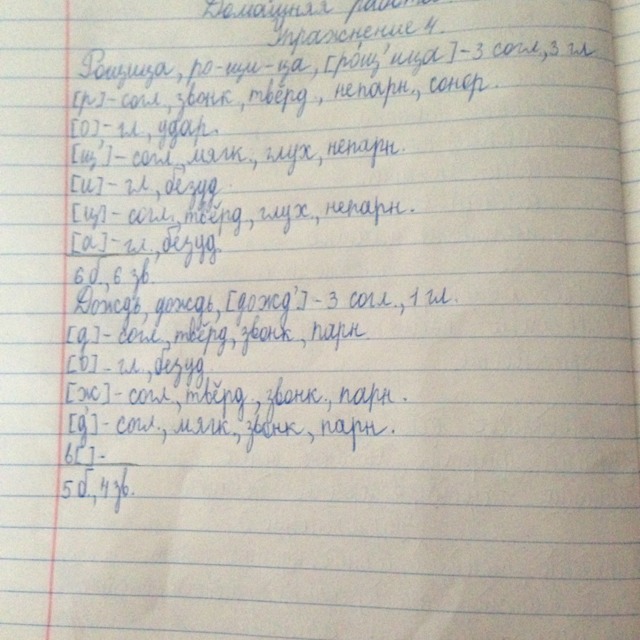 Домашняя работа
Упражнение 4.
Рощица, ро-щи-ца, [рощ'ица] - 3 согл, 3 гл
[р] - согл, звонк, твёрд, непарн, сонор.
[о] - гл, удар.
[щ'] - согл, мягк, глух, непарн.
[и] - гл, безуд
[ц] - согл, твёрд, глух, непарн.
[а] - гл, безуд.
6 б, 6 зв.
Дождь, дождь, [дожд'] - 3 согл., 1 гл.
[д] - согл, твёрд, звонк, парн
[о] - гл, безуд
[ж] - согл, твёрд, звонк, парн.
[д'] - согл, мягк, звонк, парн.
ь[ ] -
5 б, 4 зв.